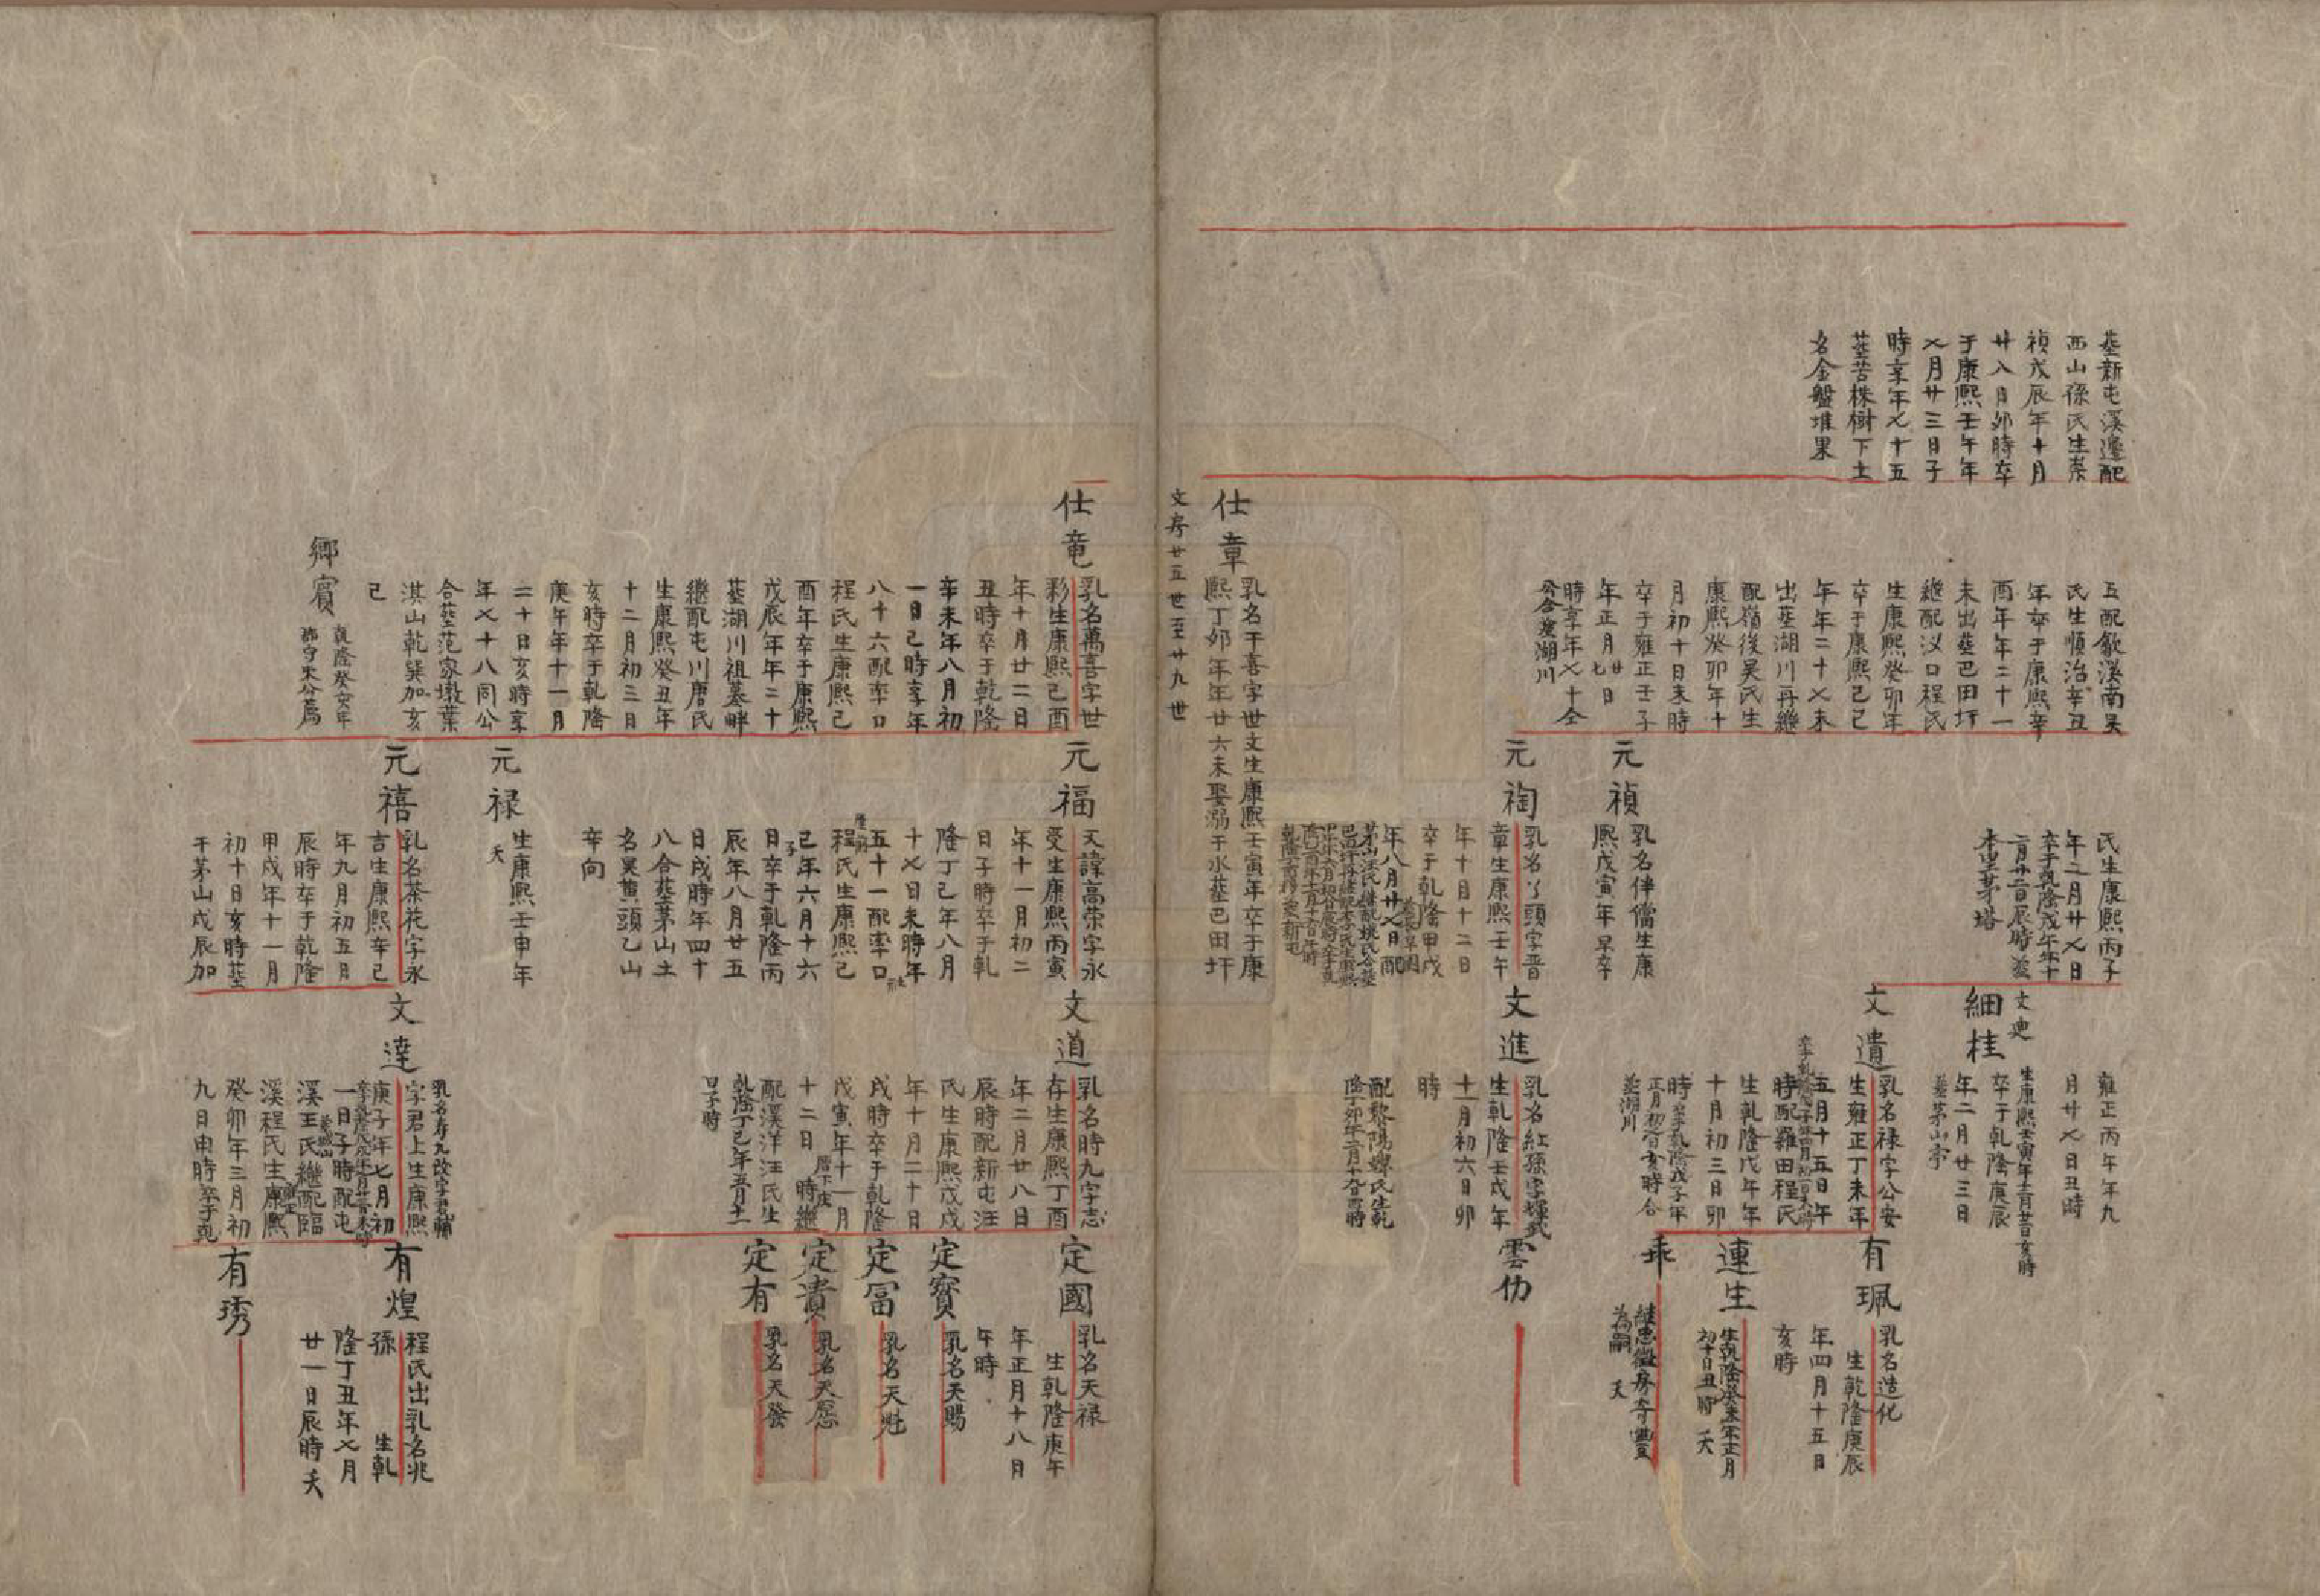 塟新屯溪邊配
西山孫氏生崇
禎戊辰年十月
廿八日卯時卒
于康熙壬午年
乂月廿三日子
時享年乂十五
塟苦株樹下土
名金盤堆果
五配歙溪南吴
氏生順治辛丑
年卒于康熙辛
酉年年二十一
未出塟巴田圩
繼配汊口程氏
生康熙癸卯年
卒于康熙己巳
年年二十乂未
出塟湖川再繼
配嶺後吴氏生
康熙癸卯年十
月初十日未時
卒于雍正壬子
年正月廿七日
時享年乂十仝
公合塟湖川
仕章
乳名干喜字世文生康熙壬寅年卒于康
熙丁卯年年廿六未娶溺于水塟巴田圩
文房廿五世至廿九世
氏生康熙丙子
年二月廿乂日
卒于乾隆戊午年十
二月廿二日辰時塟
本里茅塔
元禎
乳名伴儅生康
熙戊寅年早卒
元裪
乳名丫頭字晋
章生康熙壬午
年十月十二日
卒于乾隆甲戌
年八月廿乂日配
雍正丙年年九
月廿乂日丑時
文吏
細桂
生康熙壬寅年十二月廿一日亥時
卒于乾隆庚辰
年二月廿三日
塟茅山亭
文遺
乳名禄字公安
生雍正丁未年
五月十五日午
時配羅田程氏
生乾隆戊午年
十月初三日卯
時卒于乾隆戊子年
正月初六日亥時合
塟湖川
文進
乳名紅孫字輝武
生乾隆壬戌年
十一月初六日卯
時
配黎陽婢氏生乾
隆丁卯年二月十八日酉時
有珮
乳名造化
生乾隆庚辰
年四月十五日
亥時
連生
生乾隆癸未年正月
初十日丑時 夭
乖
繼忠徽房奇豐
為嗣 夭
雲仂
仕竜
乳名萬喜字世
彩生康熙己酉
年十月廿二日
丑時卒于乾隆
辛未年八月初
一日己時享年
八十六配率口
程氏生康熙己
酉年卒于康熙
戊辰年年二十
塟湖川祖墓畔
繼配屯川唐氏
生康熙癸丑年
十二月初三日
亥時卒于乾隆
庚午年十一月
二十日亥時享
年乂十八同公
合塟范家墩葉
淇山乾巽加亥
己
鄉賓
乾隆癸亥年
郡守朱公舊
元福
天諱高荣字永
受生康熙丙寅
年十一月初二
日子時卒于乾
隆丁己年八月
十乂日未時年
五十一配率口
程氏生康熙己
巳年六月十六
日卒于乾隆丙
辰年八月廿五
日戌時年四十
八合塟茅山土
名吴黄頭乙山
辛向
元禄
生康熙壬申年
夭
元禧
乳名茶花字永
吉生康熙辛己
年九月初五日
辰時卒于乾隆
甲戌年十一月
初十日亥時塟
于茅山戌辰加
文道
乳名時九字志
存生康熙丁酉
年二月廿八日
辰時配新屯汪
氏生康熙戊戌
年十月二十日
戌時卒于乾隆
戊寅年十一月
十二日 時繼
配溪洋汪氏生
乾隆丁巳年五月十二
日子時
文達
乳名寿九改字君輔
字君上生康熙
庚子年七月初
一日子時配屯
溪王氏繼配臨
溪程氏生康熙
癸卯年三月初
九日申時卒于乾
定國
乳名天禄
生乾隆庚午
年正月十八日
午時
定寶
乳名天賜
定冨
乳名天魁
定貴
乳名天愿
定有
乳名天發
有煌
程氏出乳名兆
孫 生乾
隆丁丑年乂月
廿一日辰時夭
有琇